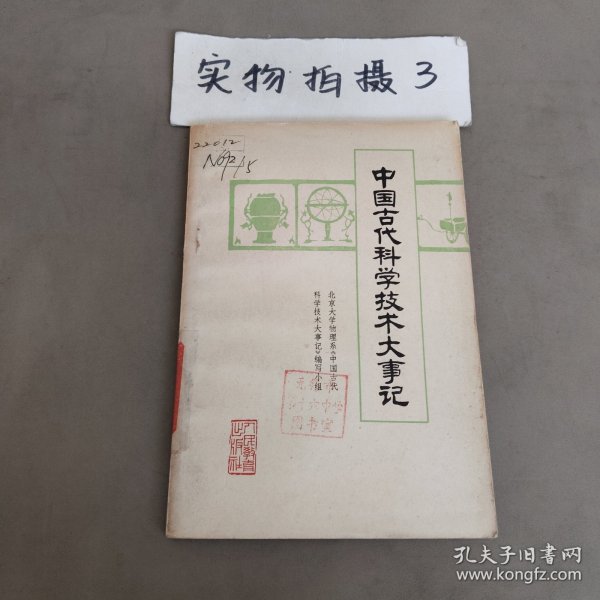 实物拍摄3
22012
N092/15
中国古代科学技术大事记
北京大学物理系《中国古代
科学技术大事记》编写小组
图书室
人民教育
出版社
孔夫子旧书网
www.kongfz.com